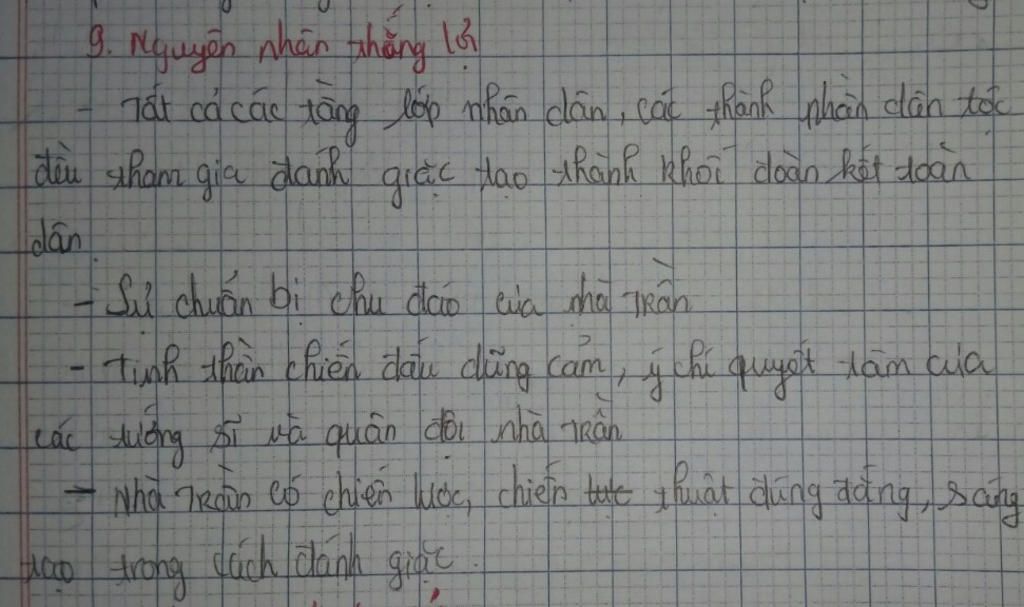 9. Nguyên nhân thắng lợi
- Tất cả các tầng lớp nhân dân, các thành phần dân tộc
đều tham gia đánh giặc tạo thành khối đoàn kết toàn
dân.
- Sự chuẩn bị chu đáo của nhà Trần
- Tinh thần chiến đấu dũng cảm, ý chí quyết tâm của
các tướng sĩ và quân đội nhà Trần
- Nhà Trần có chiến lược, chiến thuật đúng đắng, sáng
tạo trong cách đánh giặc.